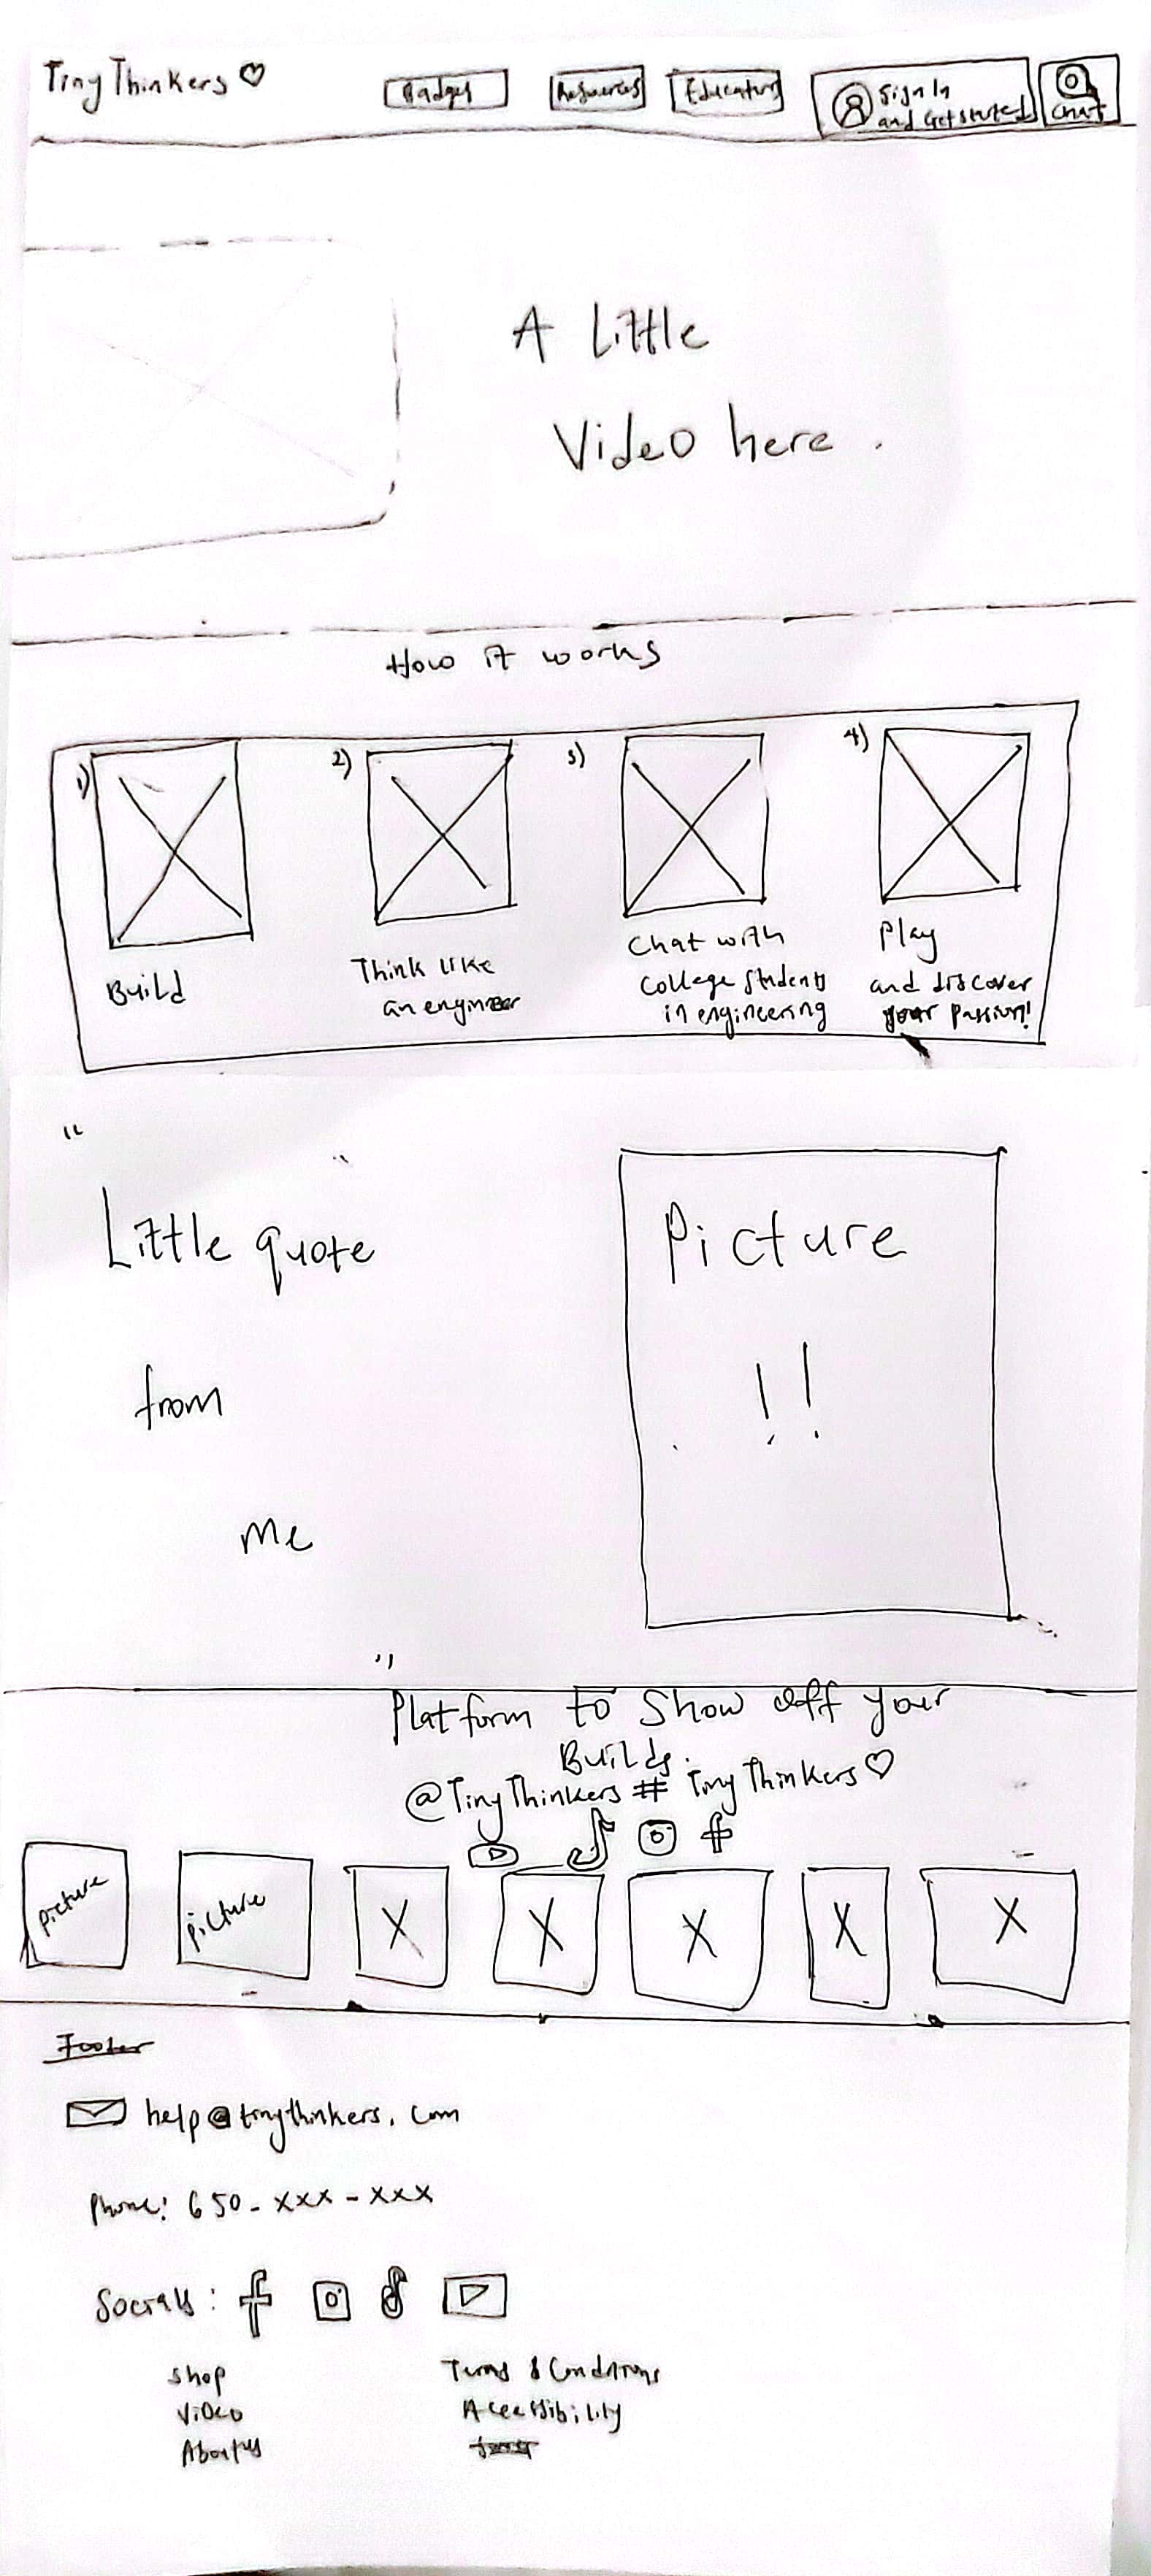 Tiny Thinkers ♡
Badges Resources Educators Sign In
and Get started Chat
A Little
Video here.
How it works
1) 2) 3) 4)
Build
Think like
an engineer
Chat with
College students
in engineering
Play
and discover
your passion!
"
Little quote
from
me
"
Picture
!!
Platform to Show off your
Builds.
@TinyThinkers # TinyThinkers ♡
picture picture X X X X X
Footer
help@tinythinkers.com
Phone: 650-xxx-xxx
Socials:
Shop
Video
About us
Terms & Conditions
Accessibility